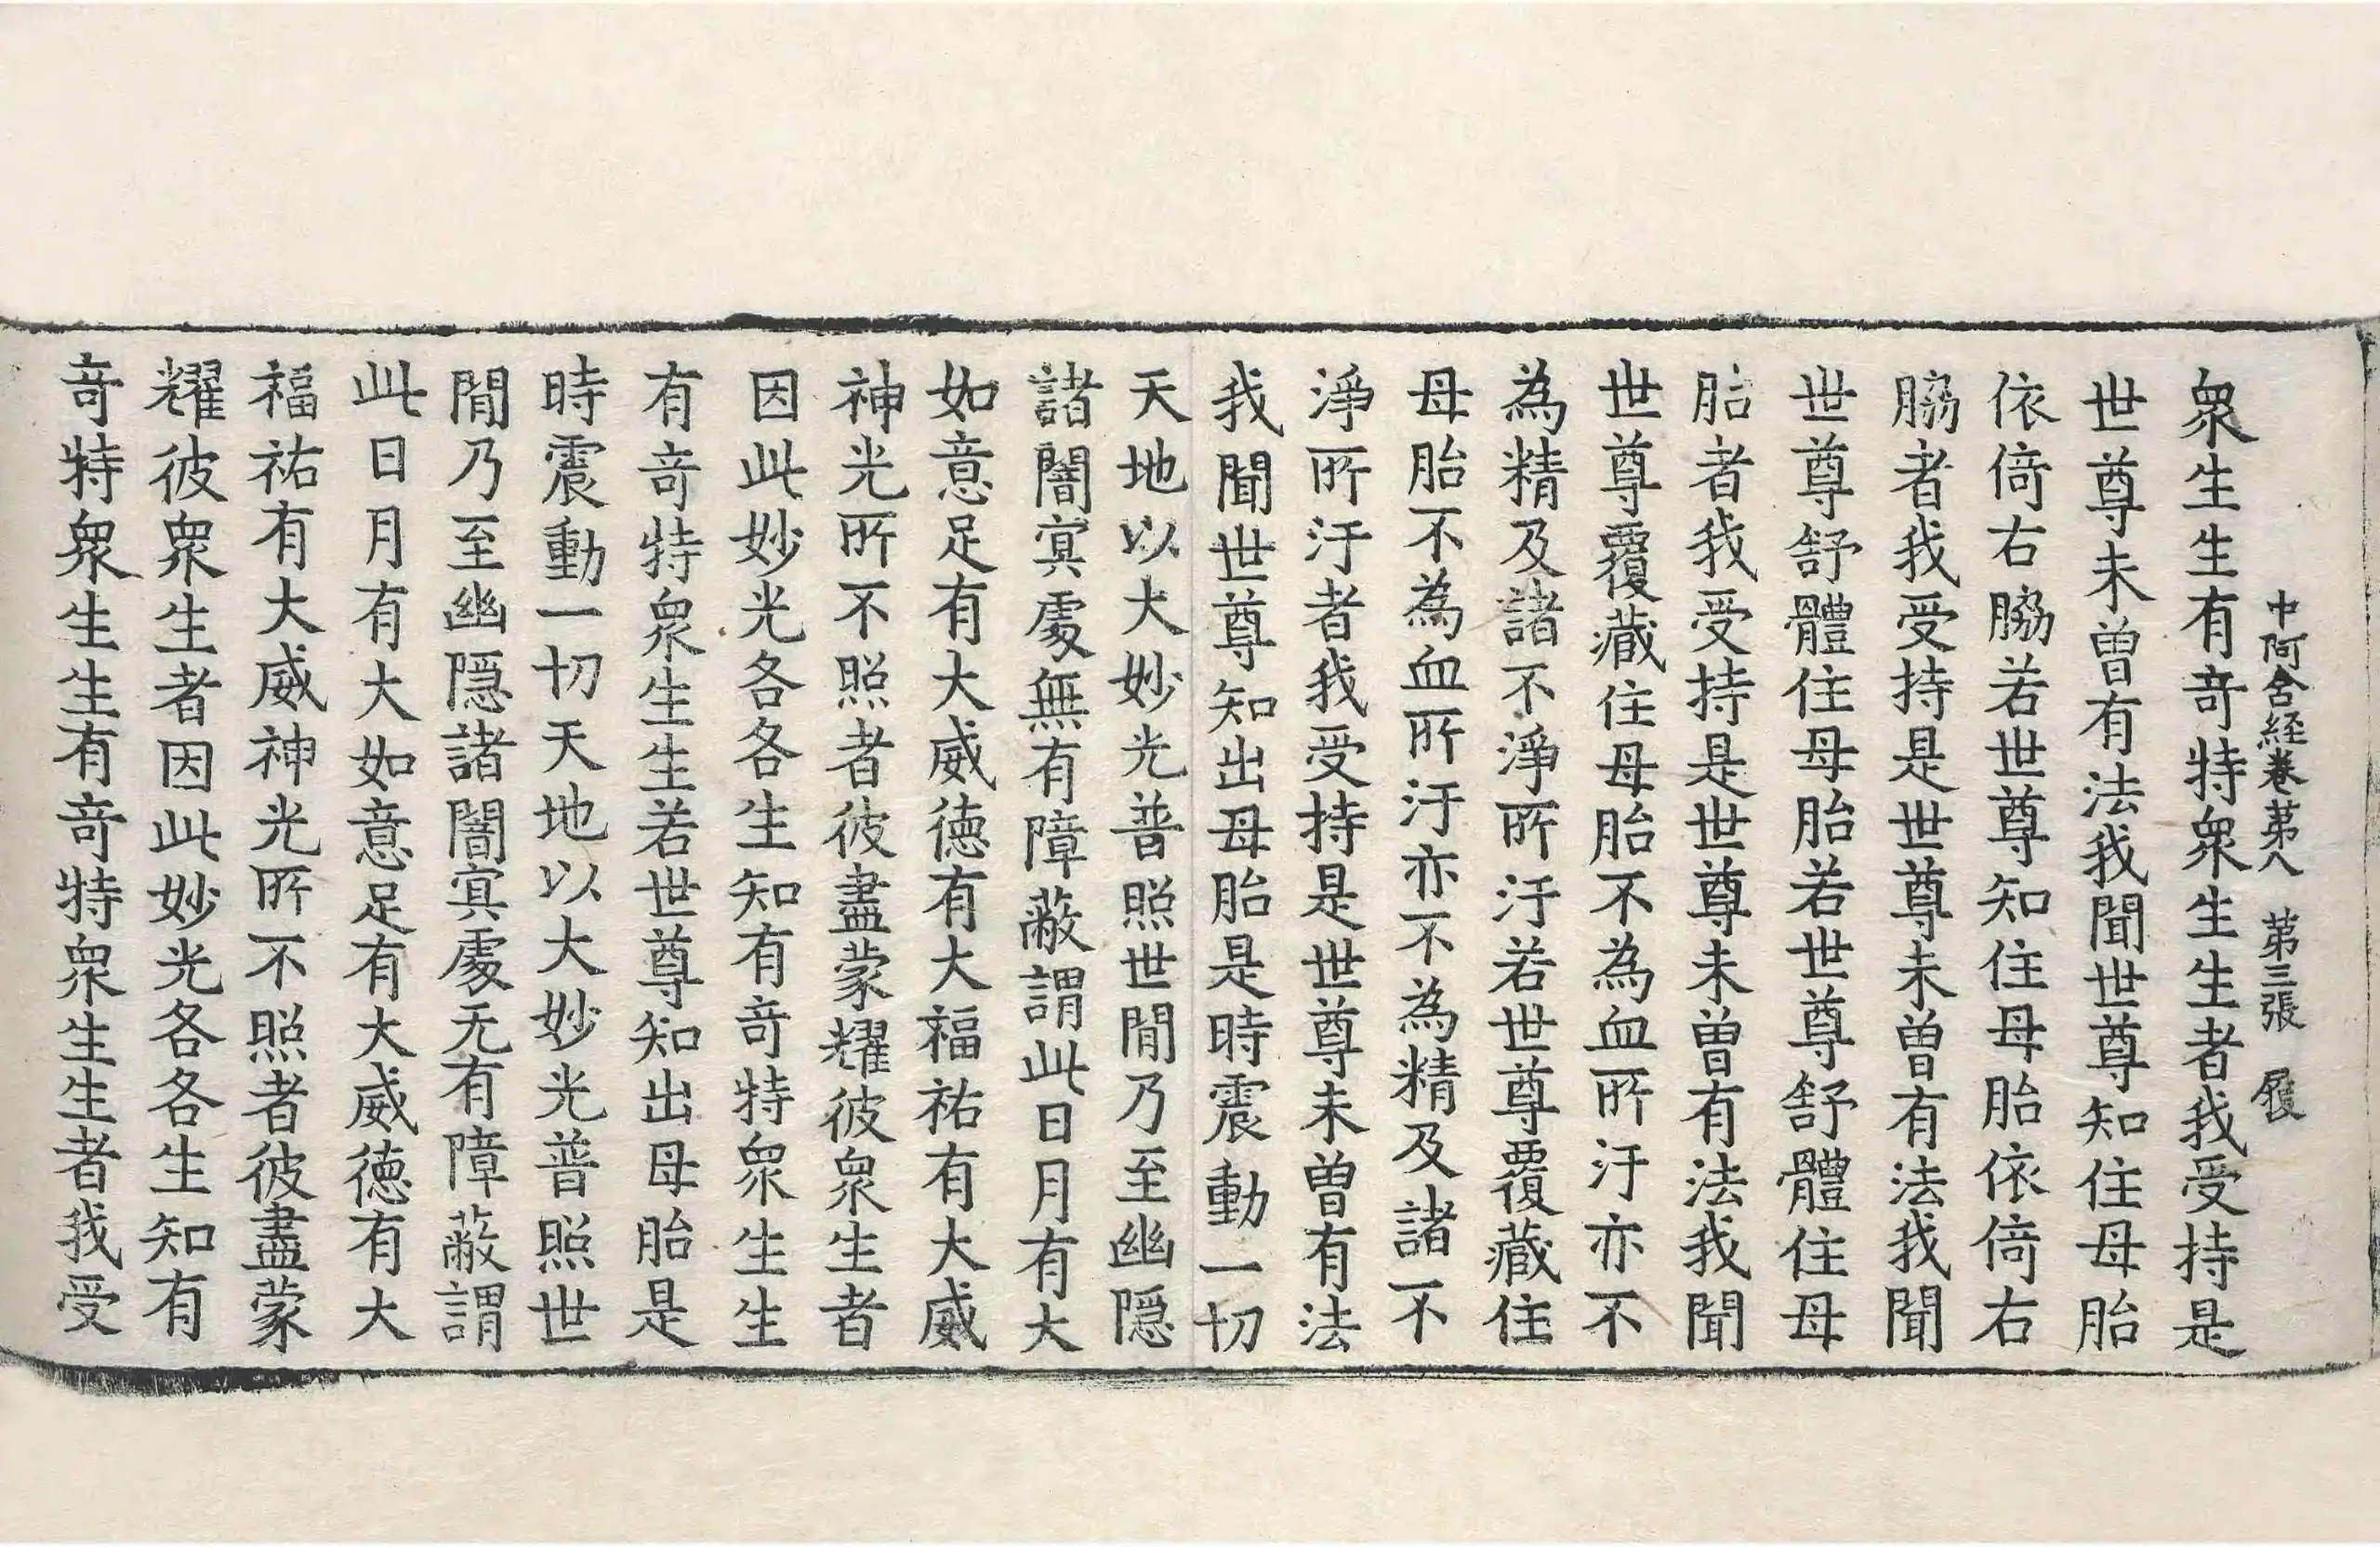 中阿含経卷苐八　苐三張　履
衆生生有竒特衆生生者我受持是
世尊未曾有法我聞世尊知住母胎
依倚右脇若世尊知住母胎依倚右
脇者我受持是世尊未曾有法我聞
世尊舒體住母胎若世尊舒體住母
胎者我受持是世尊未曾有法我聞
世尊覆藏住母胎不為血所汙亦不
為精及諸不淨所汙若世尊覆藏住
母胎不為血所汙亦不為精及諸不
淨所汙者我受持是世尊未曾有法
我聞世尊知出母胎是時震動一切
天地以大妙光普照世閒乃至幽隠
諸闇冥處無有障蔽謂此日月有大
如意足有大威徳有大福祐有大威
神光所不照者彼盡蒙耀彼衆生者
因此妙光各各生知有竒特衆生生
有竒特衆生生若世尊知出母胎是
時震動一切天地以大妙光普照世
閒乃至幽隠諸闇冥處无有障蔽謂
此日月有大如意足有大威徳有大
福祐有大威神光所不照者彼盡蒙
耀彼衆生者因此妙光各各生知有
竒特衆生生有竒特衆生生者我受